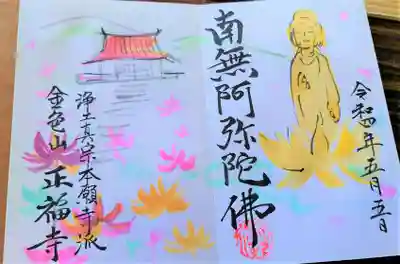 令和四年五月五日
南無阿弥陀佛
浄土真宗本願寺派
金色山正福寺